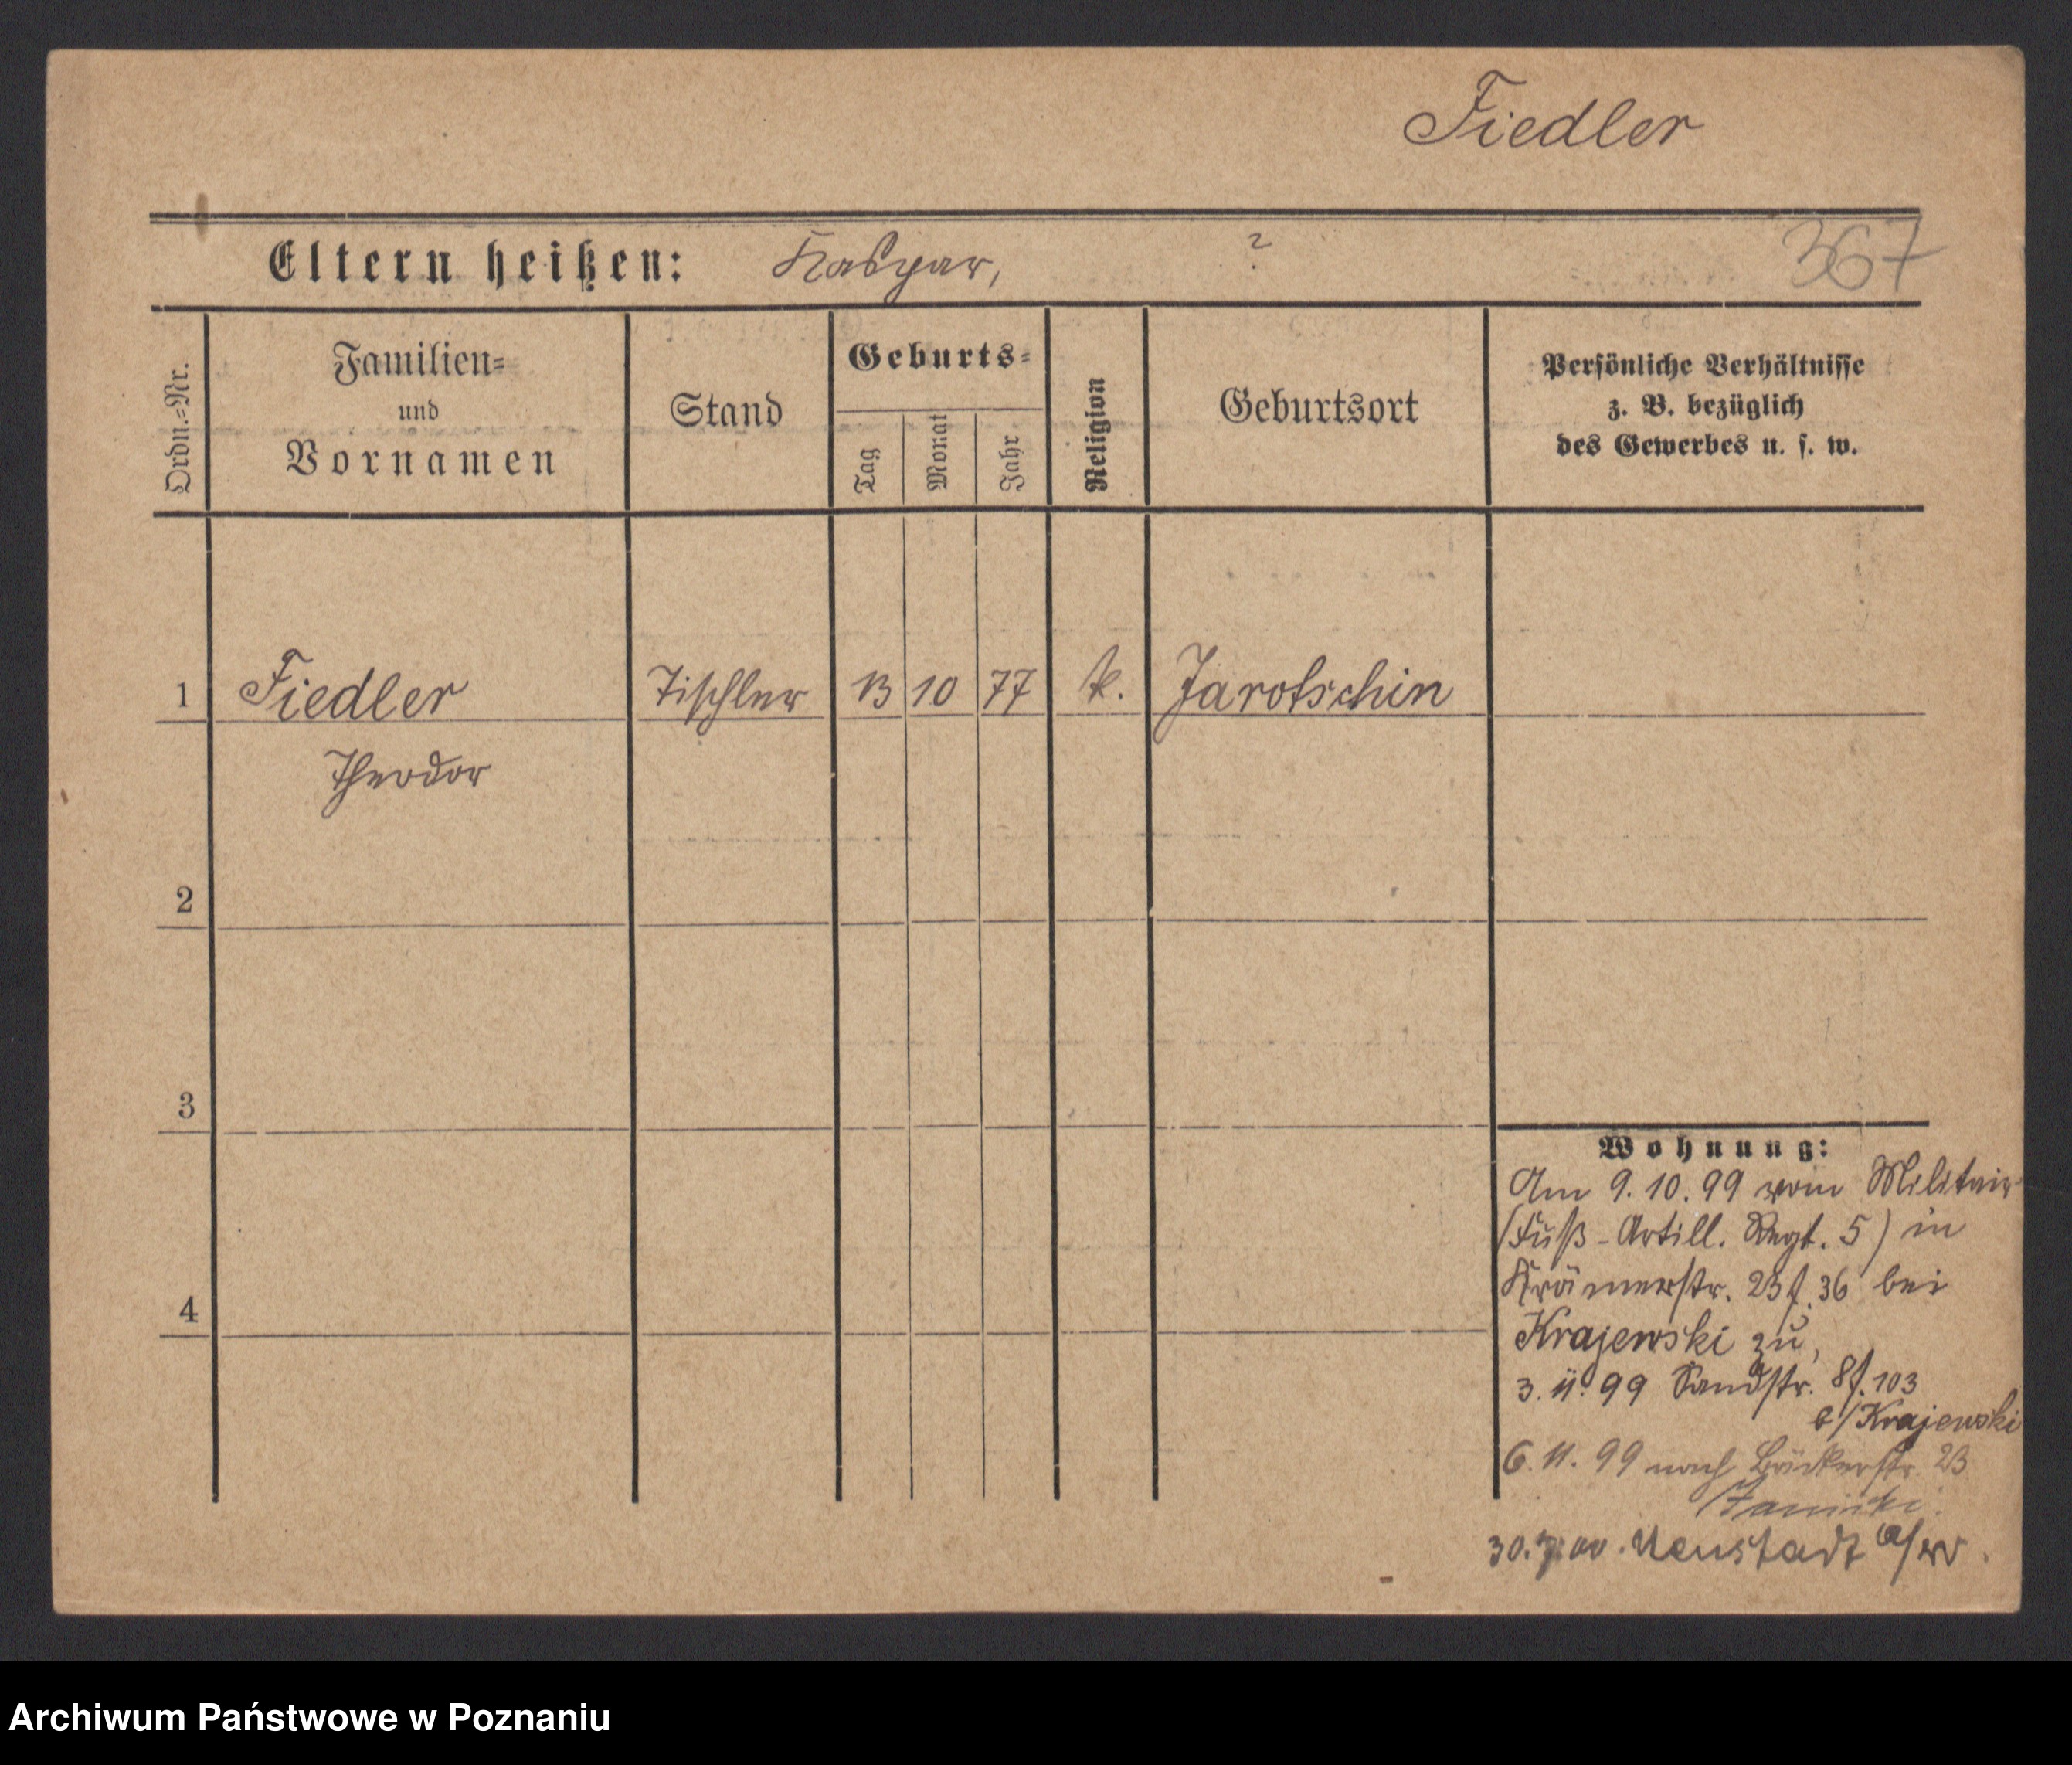 Fiedler
Eltern heißen: Kaspar, ?
367
Ordn.=Nr.
Familien=
und
Vornamen
Stand
Geburts=
Tag
Monat
Jahr
Religion
Geburtsort
Persönliche Verhältnisse
z. B. bezüglich
des Gewerbes u. s. w.
1 Fiedler Tischler 13 10 77 k. Jarotschin
Theodor
2
3
4
Wohnung:
Am 9. 10. 99 vom Militair
(Fuß-Artill. Regt. 5) in
Krämerstr. 23 f. 36 bei
Krajewski zu,
3. 11. 99 Sandstr. 8 f. 103
b/Krajewski
6. 11. 99 nach Bäckerstr. 23
30. 7. 00. Neustadt a/w.
Archiwum Państwowe w Poznaniu